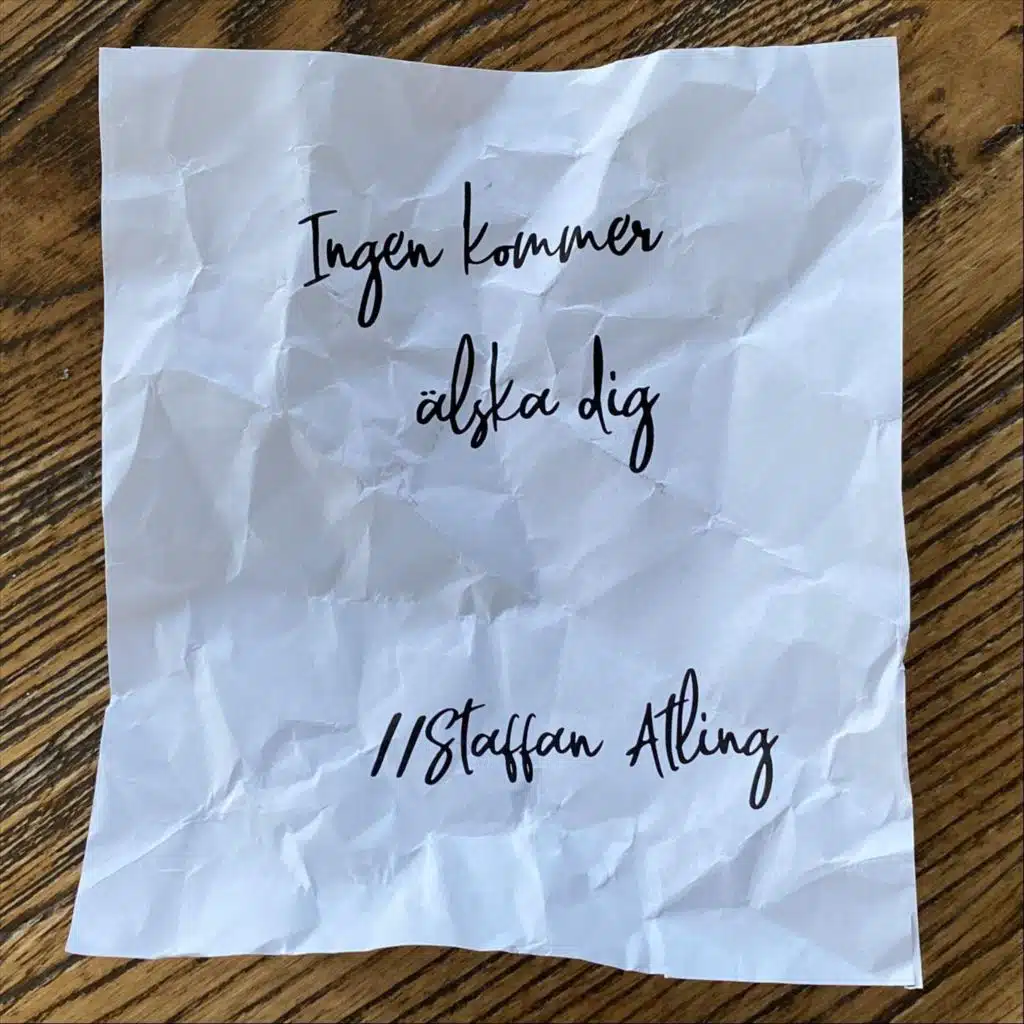 Ingen kommer
älska dig
//Staffan Atling